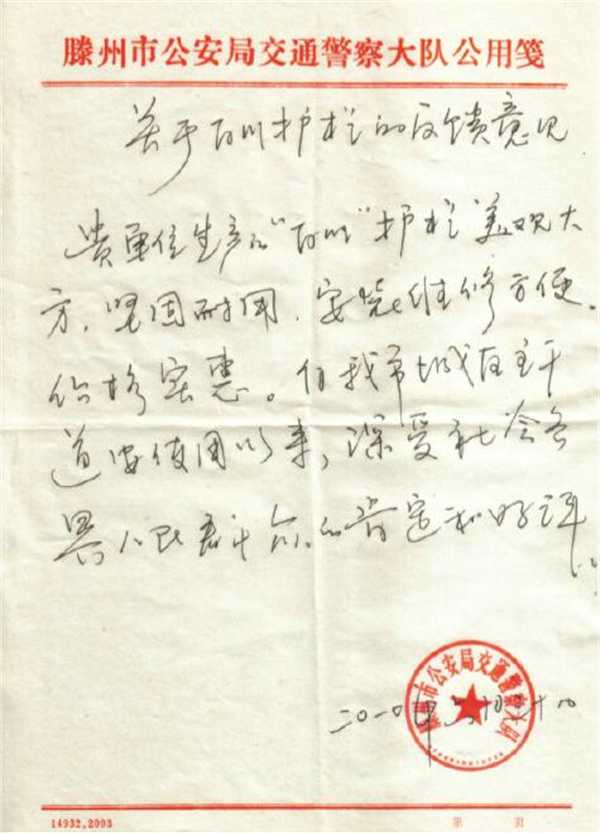 滕州市公安局交通警察大队公用笺
关于百川护栏的反馈意见
贵单位生产的“百川”护栏美观大
方，坚固耐用，安装维修方便。
价格实惠。自我市城区主干
道安使用以来，深受社会各
界人民群众的肯定和好评
滕州市公安局交通警察大队
二〇一〇年
14932.2093
第 页